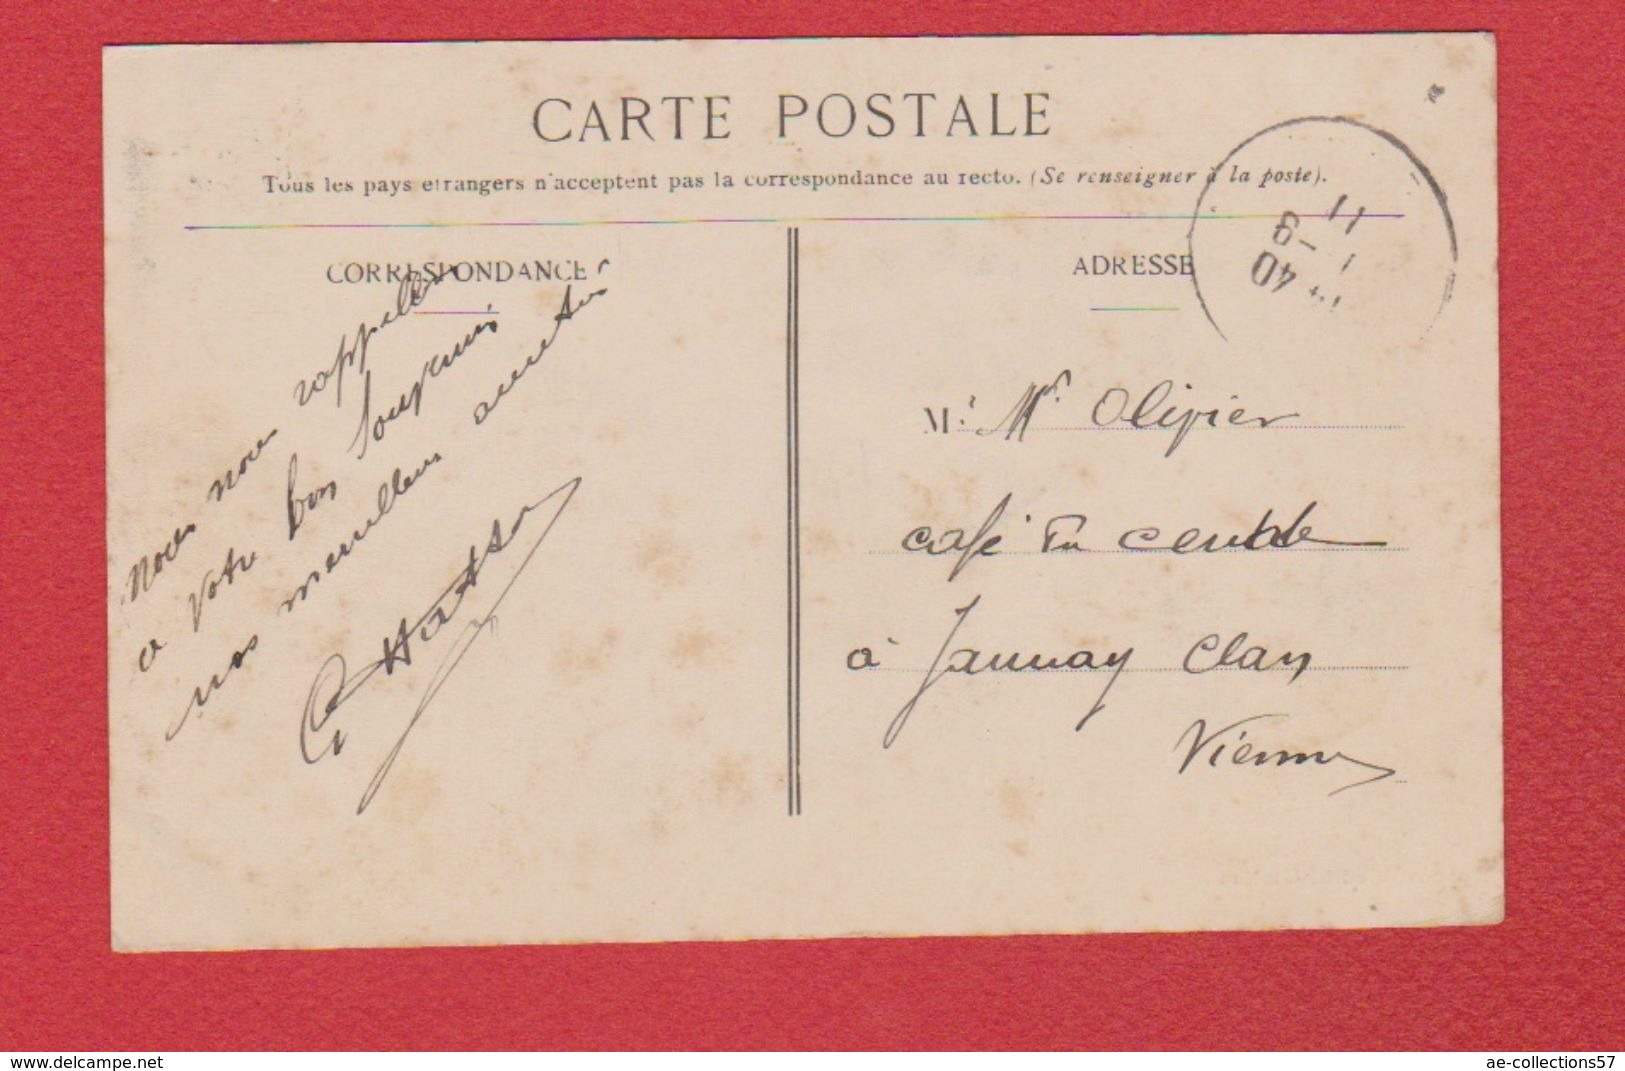 CARTE POSTALE
Tous les pays etrangers n'acceptent pas la correspondance au recto. (Se renseigner à la poste).
CORRESPONDANCE
nous nous rappellons
a votre bon souvenir
nos meilleurs amitiés
ADRESSE
40
1 -9
11
M. Mr Olivier
café du centre
à Jaunay Clan
Vienne
www.delcampe.net
ae-collections57